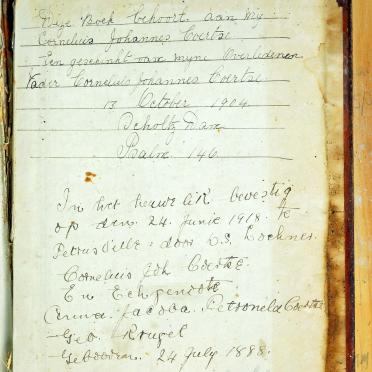 Deze Boek behoort aan my
Cornelius Johannes Coertse
Een geschenk van myne Overledenen
Vader Cornelius Johannes Coertse
13 October 1904
Psalm 146
In het heuwelik bevestig
op den 24 Junie 1918 te
Petrusville door DS. Lochner.
Cornelius Joh Coertse
En Echgenote
Anna Jacoba Petronela Coertse
Geb. Krugel
Gebooren 24 July 1898.